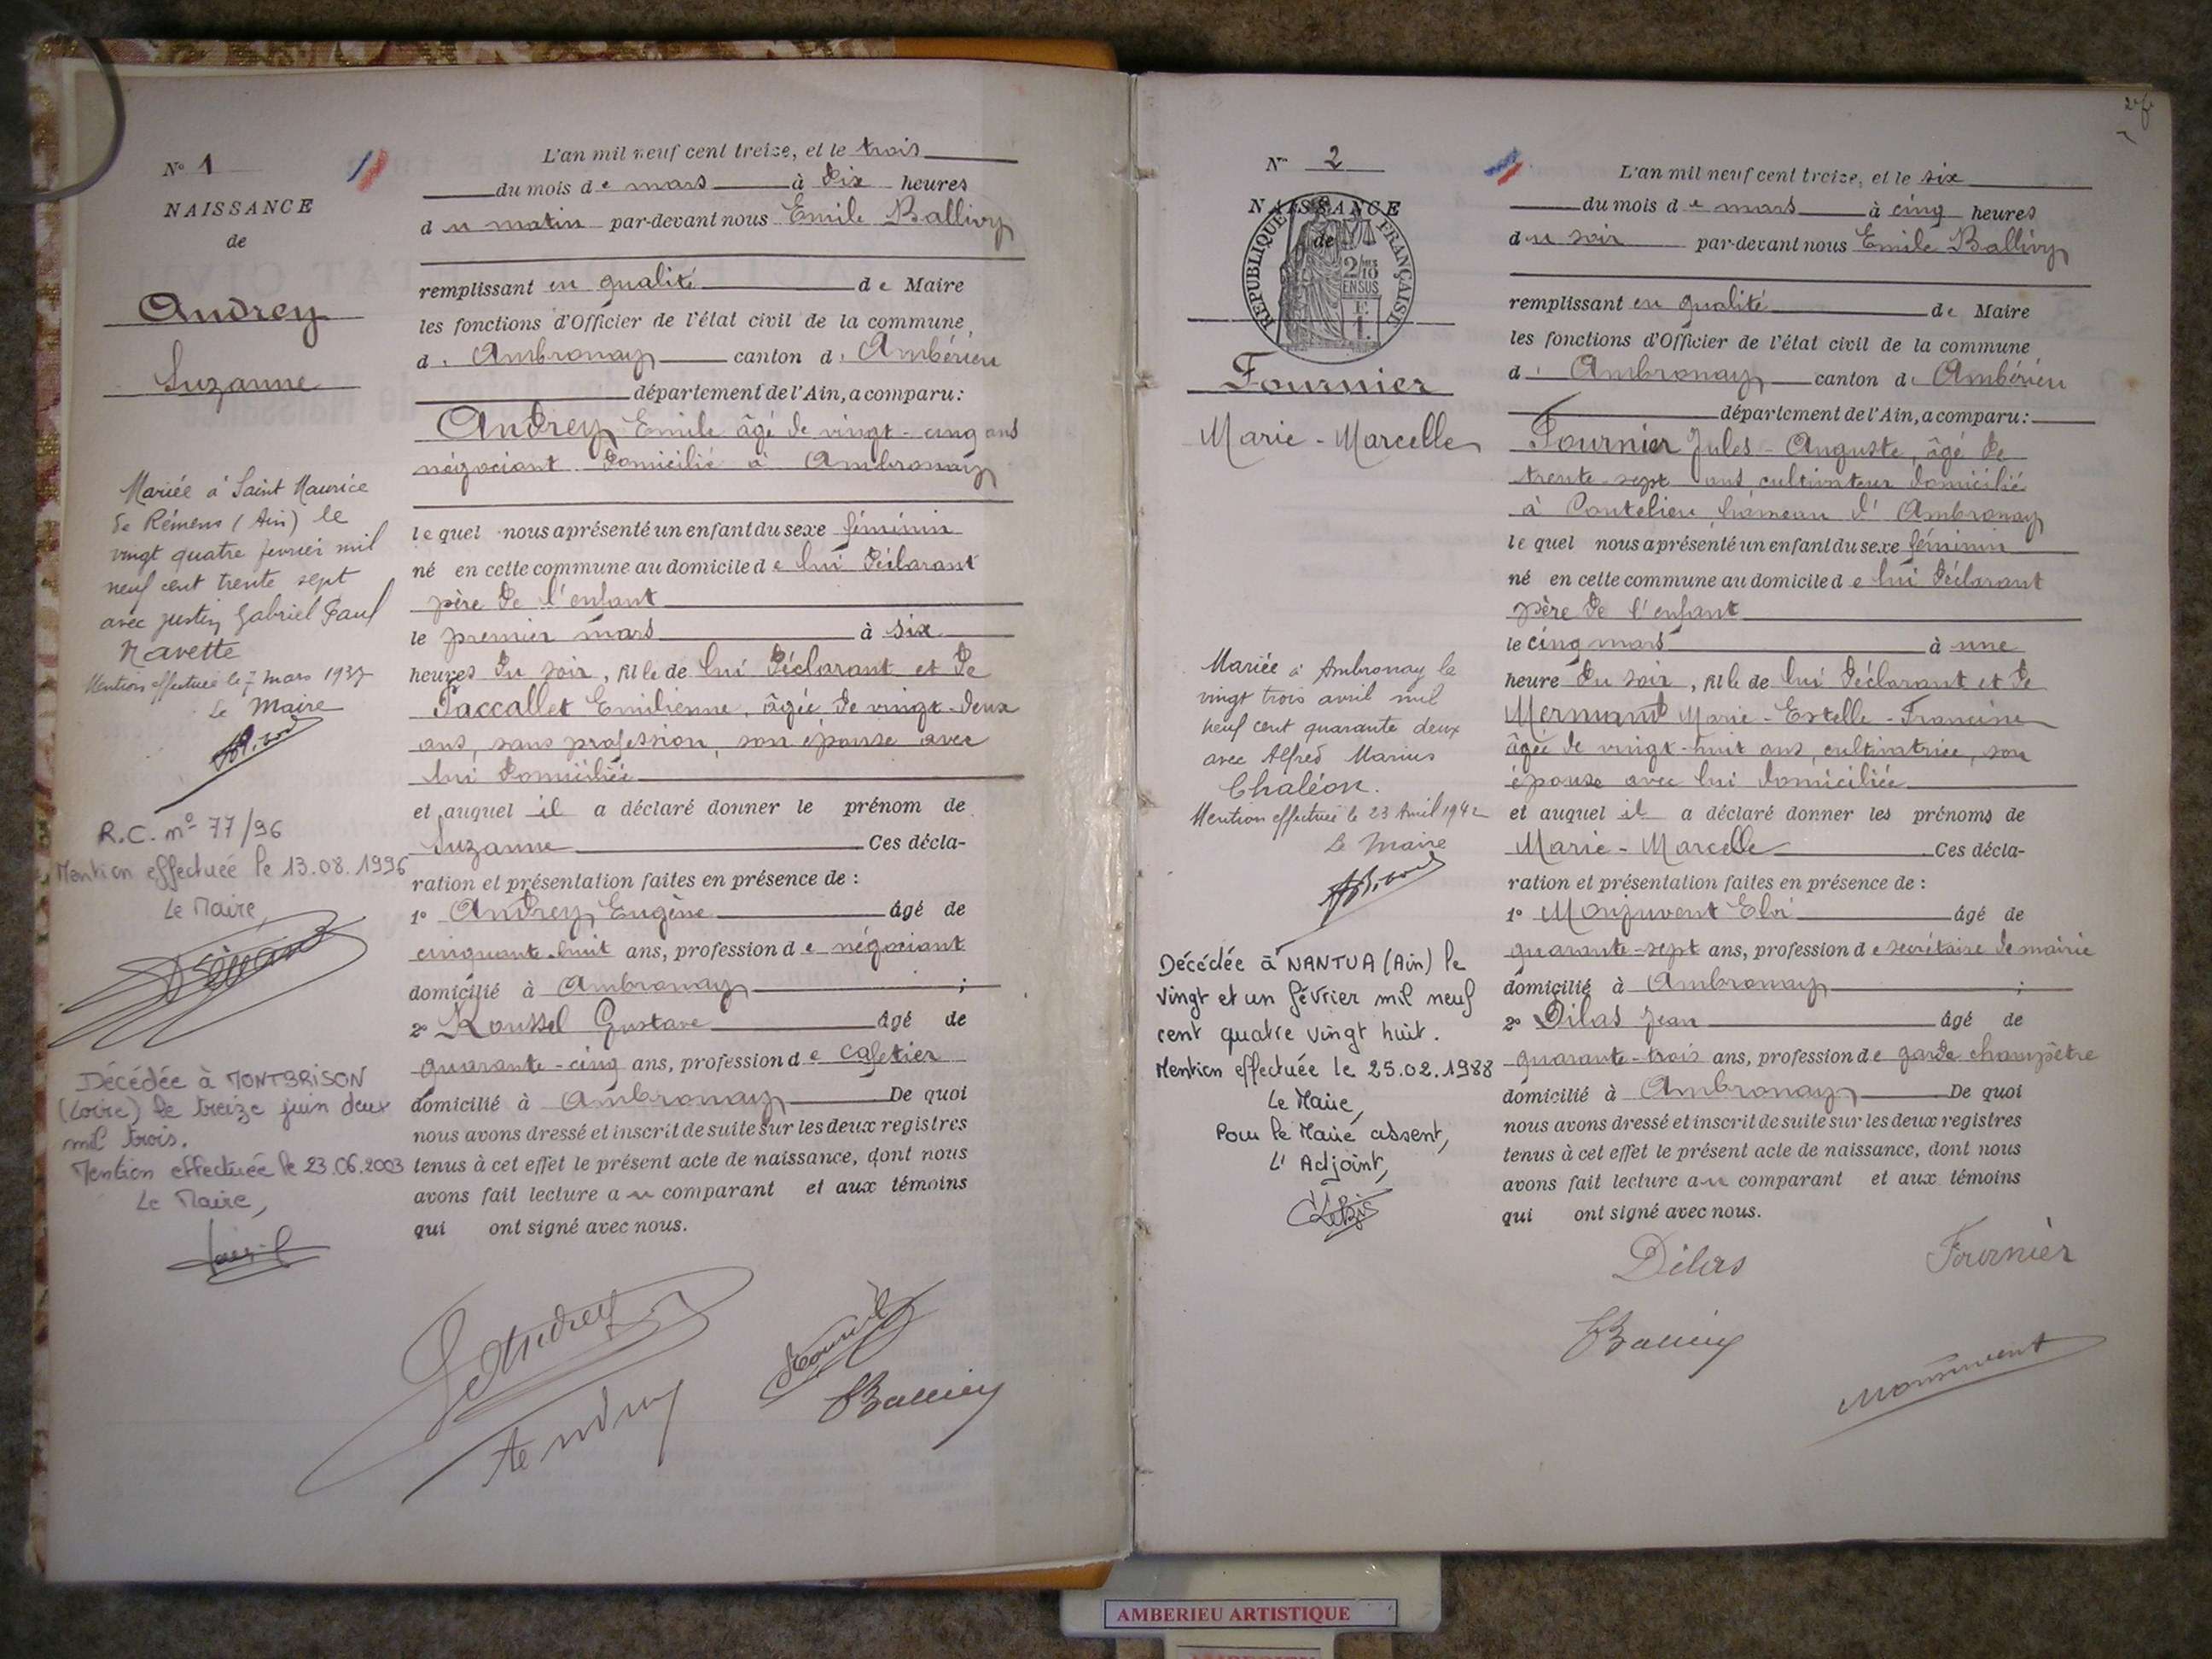 N° 1
NAISSANCE
de
Andrey
Suzanne
Mariée à Saint Maurice
de Rémens (Ain) le
vingt quatre fevrier mil
neuf cent trente sept
avec Justin Gabriel Paul
Navette
Mention effectuée le 7 mars 1937
Le Maire
R.C. n° 77/96
Mention effectuée le 13.08.1996
Le Maire,
Décédée à MONTBRISON
(Loire) le treize juin deux
mil trois.
Mention effectuée le 23.06.2003
Le Maire,
L'an mil neuf cent treize, et le trois
du mois de mars à dix heures
du matin par-devant nous Emile Ballivy
remplissant en qualité de Maire
les fonctions d'Officier de l'état civil de la commune
d' Ambronay canton d' Ambérieu
département de l'Ain, a comparu:
Andrey Emile âgé de vingt-cinq ans
négociant domicilié à Ambronay
lequel nous a présenté un enfant du sexe féminin
né en cette commune au domicile de lui déclarant
père de l'enfant
le premier mars à six
heures du soir, fille de lui déclarant et de
Paccallet Emilienne, âgée de vingt-deux
ans, sans profession, son épouse avec
lui domiciliée
et auquel il a déclaré donner le prénom de
Suzanne Ces décla-
ration et présentation faites en présence de :
1° Andrey Eugène âgé de
cinquante-huit ans, profession de négociant
domicilié à Ambronay ;
2° Roussel Gustave âgé de
quarante-cinq ans, profession de cafetier
domicilié à Ambronay De quoi
nous avons dressé et inscrit de suite sur les deux registres
tenus à cet effet le présent acte de naissance, dont nous
avons fait lecture au comparant et aux témoins
qui ont signé avec nous.
Andrey
Andrey
Ballivy
N° 2
NAISSANCE
de
REPUBLIQUE FRANÇAISE
2/10
EN SUS
Fournier
Marie-Marcelle
Mariée à Ambronay le
vingt trois avril mil
neuf cent quarante deux
avec Alfred Marius
Chaléon.
Mention effectuée le 23 Avril 1942
Le Maire
Décédée à NANTUA (Ain) le
vingt et un février mil neuf
cent quatre vingt huit.
Mention effectuée le 25.02.1988
Le Maire,
Pour le Maire absent,
L'Adjoint,
L'an mil neuf cent treize, et le six
du mois de mars à cinq heures
du soir par-devant nous Emile Ballivy
remplissant en qualité de Maire
les fonctions d'Officier de l'état civil de la commune
d' Ambronay canton d' Ambérieu
département de l'Ain, a comparu:
Fournier Jules-Auguste, âgé de
trente-sept ans, cultivateur domicilié
à Coutelieu, hameau d'Ambronay
lequel nous a présenté un enfant du sexe féminin
né en cette commune au domicile de lui déclarant
père de l'enfant
le cinq mars à une
heure du soir, fille de lui déclarant et de
Mermand Marie-Estelle-Francine
âgée de vingt-huit ans, cultivatrice, son
épouse avec lui domiciliée
et auquel il a déclaré donner les prénoms de
Marie-Marcelle Ces décla-
ration et présentation faites en présence de :
1° Monjuvent Eloi âgé de
quarante-sept ans, profession de secrétaire de mairie
domicilié à Ambronay ;
2° Dilas Jean âgé de
quarante-trois ans, profession de garde champêtre
domicilié à Ambronay De quoi
nous avons dressé et inscrit de suite sur les deux registres
tenus à cet effet le présent acte de naissance, dont nous
avons fait lecture au comparant et aux témoins
qui ont signé avec nous.
Dilas Fournier
Ballivy
Monjuvent
AMBERIEU ARTISTIQUE